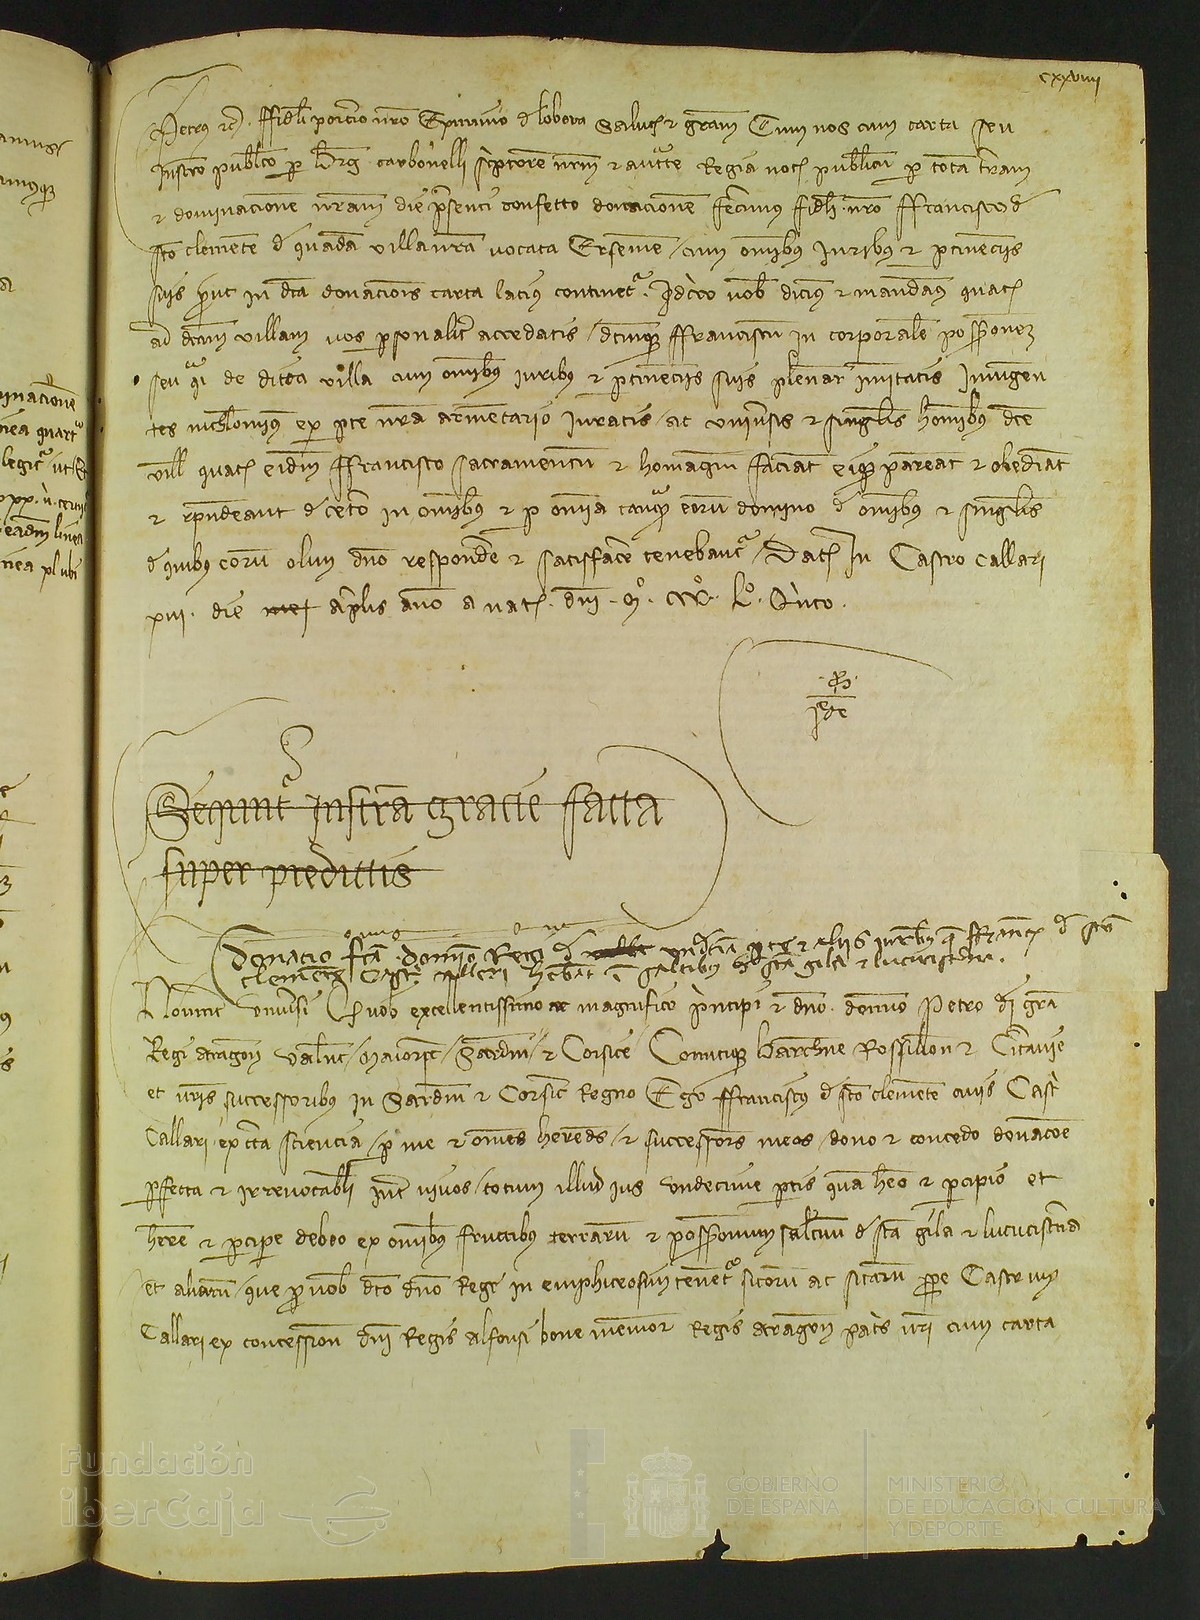 cxxviiii
Petrus etc. ffideli porterio nro Eximino d lobera Salutem et gram Cum nos cum carta seu
Instro publico per Brg carbonelli scriptorem nrm et auctte Regia not publicum per totam terram
et dominacionem nram die presenti confecto donacionem fecimus fideli nro ffrancisco d
sto clemente de quadam villa nra vocata Ersemen / cum omibus Iuribus et ptinenciis
suis prout in dicta donacionis carta lacius continetr. Idcirco vob dicims et mandams quatenus
ad dcam villam vos psonaliter accedatis / dcumque ffranciscum in corporalem possessionem
seu quasi de dicta villa cum omibus iuribus et ptinenciis suis plenarie imitatis Iniungen
tes nichilominus ex pte nra armentario Iuratis / ac universis et singulis hominibus dce
ville quatenus eidem ffrancisco sacramentum et homagium faciant eique pareant et obediant
et respondeant d cetero in omibus et p omnia tanquam eorum domino d omibus et singulis
d quibus eorum olim dno respondere et satisffacere tenebantr / Dat In Castro Callari
xvi. die aprilis anno a nat. dni. Mo. CCCo. Lo. Quinto.
Sequntr Instra gracie facta
super predictis
Donacio fca domino Regi d undecima pte et aliis iuribus que ffrancs d sto
clemente Castri Callari hebat in saltibus d sta gila et lucucisterna.
Noverint universi Quod vob excellentissimo ac magnifico principi et dno. domno Petro dei gra
Regi aragon Valencie / Maioric / Sardin / et Corsice Comitique Barchne Rossilion et Ceritanie
et vris successoribus in Sardin et Corsic Regno Ego ffranciscus d sto clemente civis Castri
Callari ex certa sciencia / per me et omnes heredes / et successores meos / dono et concedo donacione
perfecta et irrevocabili inter vivos / totum illud ius undecime partis quam habeo et percipio et
habere et percipere debeo ex omibus fructibus terrarum et possessionum saltuum d sta gila et lucucisterna
et aliarum / que pro vob dicto dno Rege in emphiteosim tenetr sitorum ac sitarum prope Castrum
Callari ex concessione dni Regis alfonsi bone memorie Regis aragon patris vri cum carta
Fundación
iberCaja
GOBIERNO
DE ESPAÑA
MINISTERIO
DE EDUCACIÓN, CULTURA
Y DEPORTE